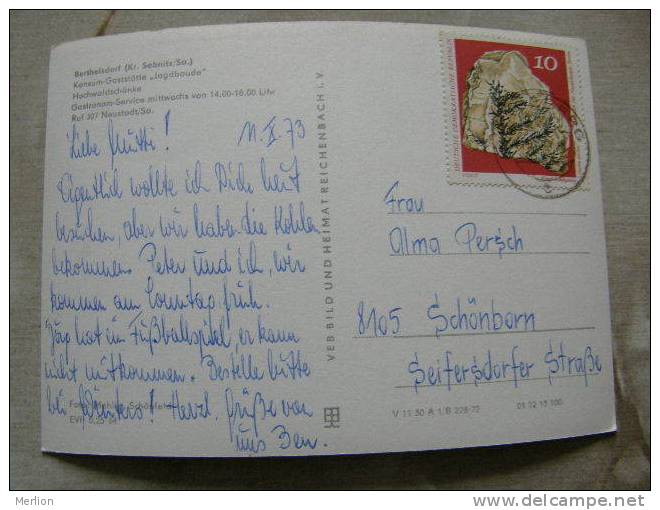 Berthelsdorf (Kr. Sebnitz/Sa.)
Konsum-Gaststätte „Jagdbaude"
Hochwaldschänke
Gastronom-Service mittwochs von 14.00-18.00 Uhr
Ruf 307 Neustadt/Sa.
Liebe Mutti!
73
Eigentlich wollte ich Dich heut
besuchen, aber wir haben die Kohlen
bekommen. Peter und ich, wir
kommen am Sonntag früh.
Jörg hat ein Fußballspiel, er kann
nicht mitkommen. Bestelle bitte
bei Herzl. Grüße von
uns
VEB BILD UND HEIMAT REICHENBACH i. V.
10
DEUTSCHE DEMOKRATISCHE REPUBLIK
Frau
Alma Persch
8105 Schönborn
Seifersdorfer Straße
V 11 50 A 1/B 228/72
01 12 10 100
Merlion
www.delcampe.net